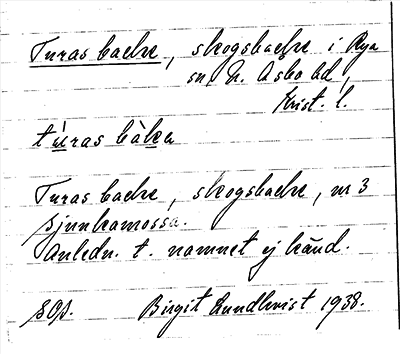 Turas backe, skogsbacke i Rya
sn, N. Åsbo hd,
Krist. l.
tùras bàka
Turas backe, skogsbacke, nr 3
Sjunkamossa.
Anledn. t. namnet ej känd.
SOP. Birgit Lundkvist 1938.